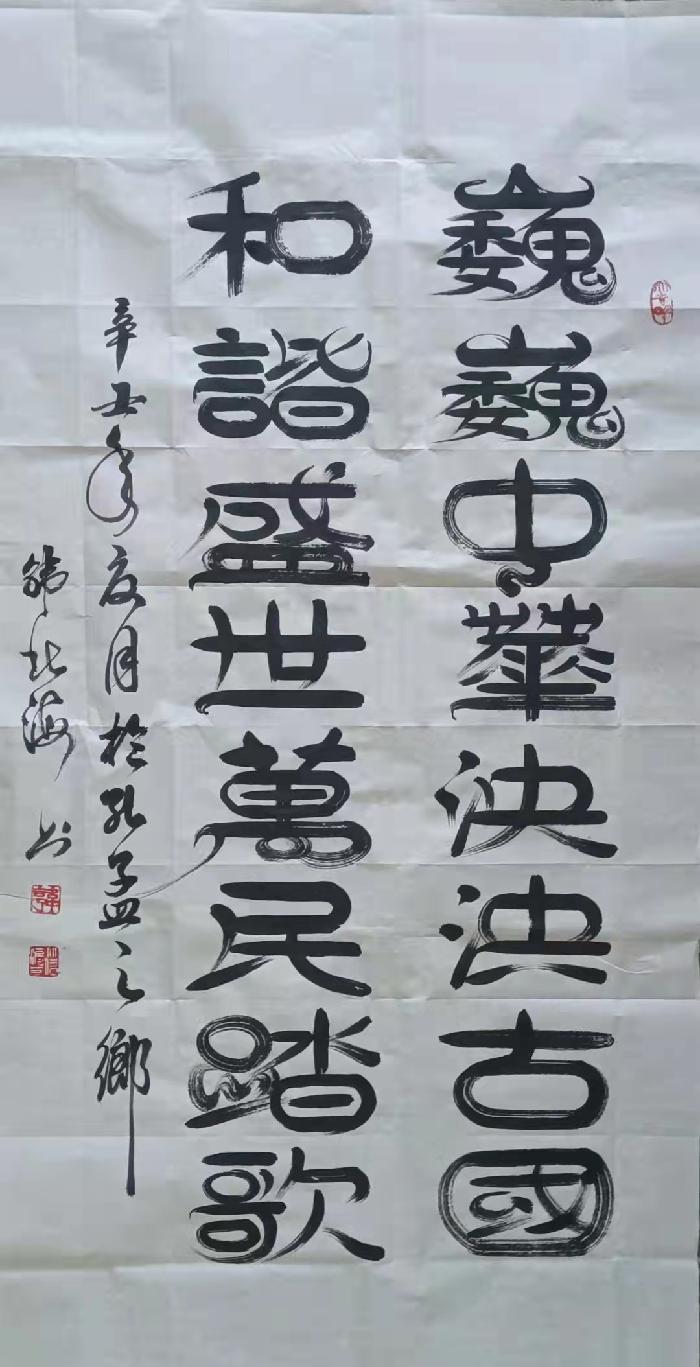 巍巍中華泱泱古國
和諧盛世萬民踏歌
辛丑年夏月於孔孟之鄉
韩北海书